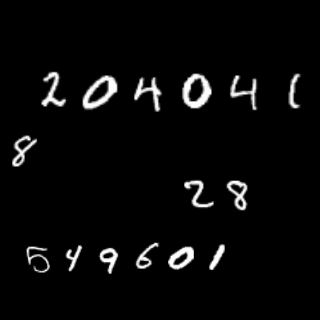 204041
8
28
549601